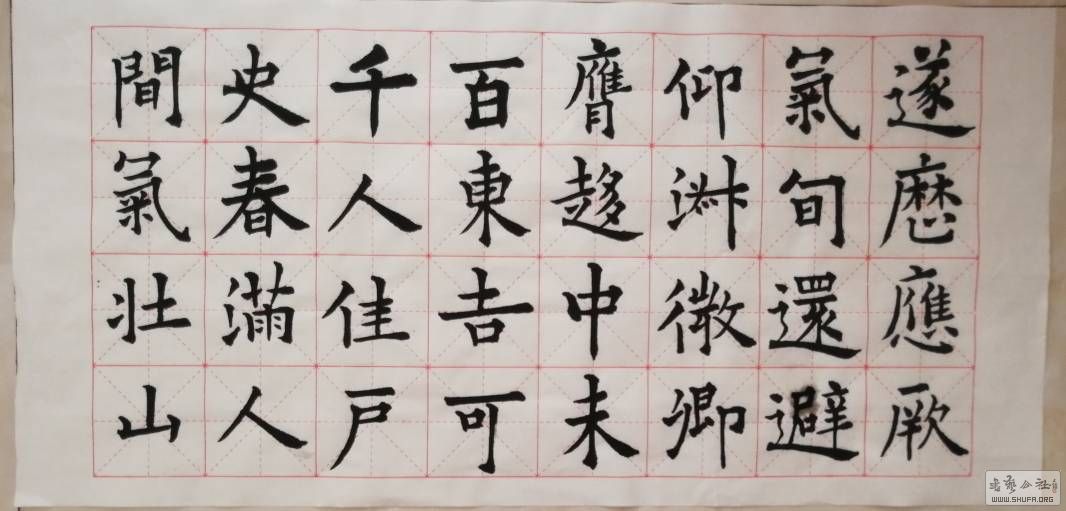 遂歷應厥
氣旬還避
仰微卿
膺趍中未
百東吉可
千人佳戶
史春滿人
間氣壯山
书艺公社
WWW.SHUFA.ORG